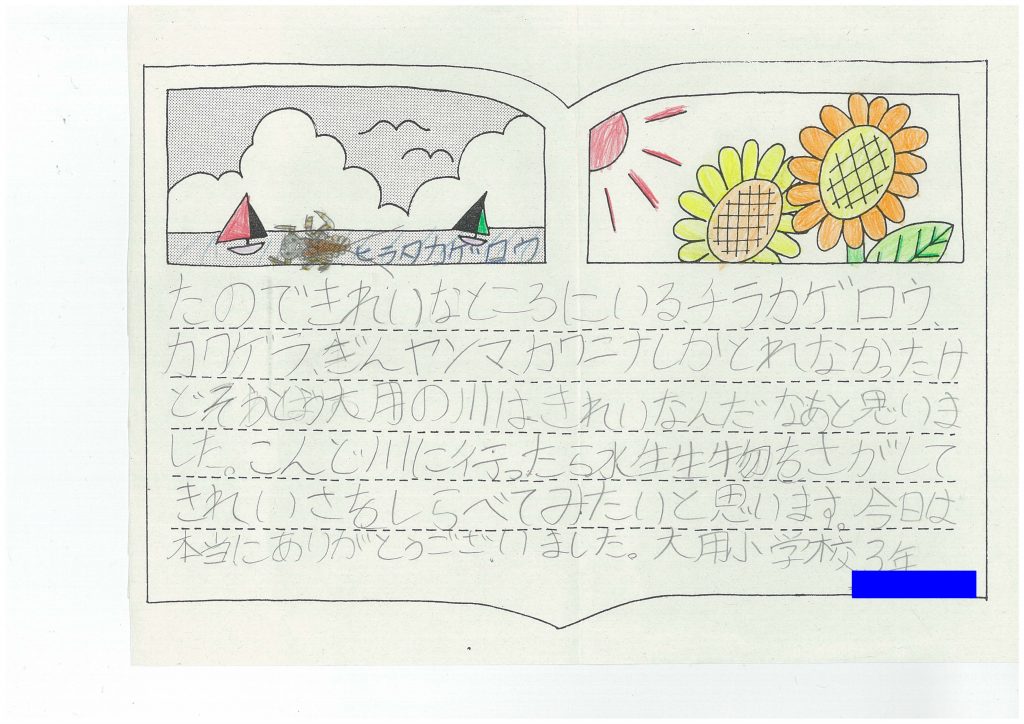 ヒラタカゲロウ
たのできれいなところにいるチラカゲロウ、
カワゲラ、ぎんヤンマ、カワニナしかとれなかったけ
ど大用の川は、きれいなんだなあと思いま
した。こんど川に行ったら水生生物をさがして
きれいさをしらべてみたいと思います。今日は
本当にありがとうございました。大用小学校3年